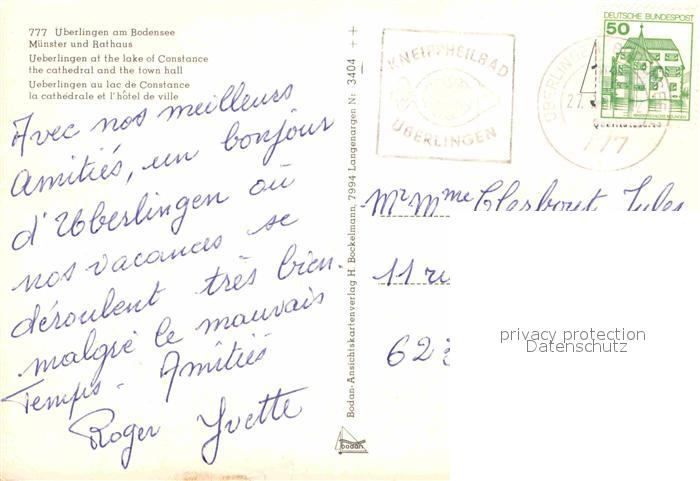 777 Überlingen am Bodensee
Münster und Rathaus
Ueberlingen at the lake of Constance
the cathedral and the town hall
Ueberlingen au lac de Constance
la cathédrale et l'hôtel de ville
Avec nos meilleurs
Amitiés, un bonjour
d'Uberlingen où
nos vacances se
déroulent très bien.
malgré le mauvais
Temps. Amitiés
Roger Yvette
Bodan-Ansichtskartenverlag H. Bockelmann, 7994 Langenargen Nr. 3404 ++
bodan
KNEIPPHEILBAD
ÜBERLINGEN
DEUTSCHE BUNDESPOST
50
ÜBERLINGEN
777
Mr Mme Jules
11
62
privacy protection
Datenschutz